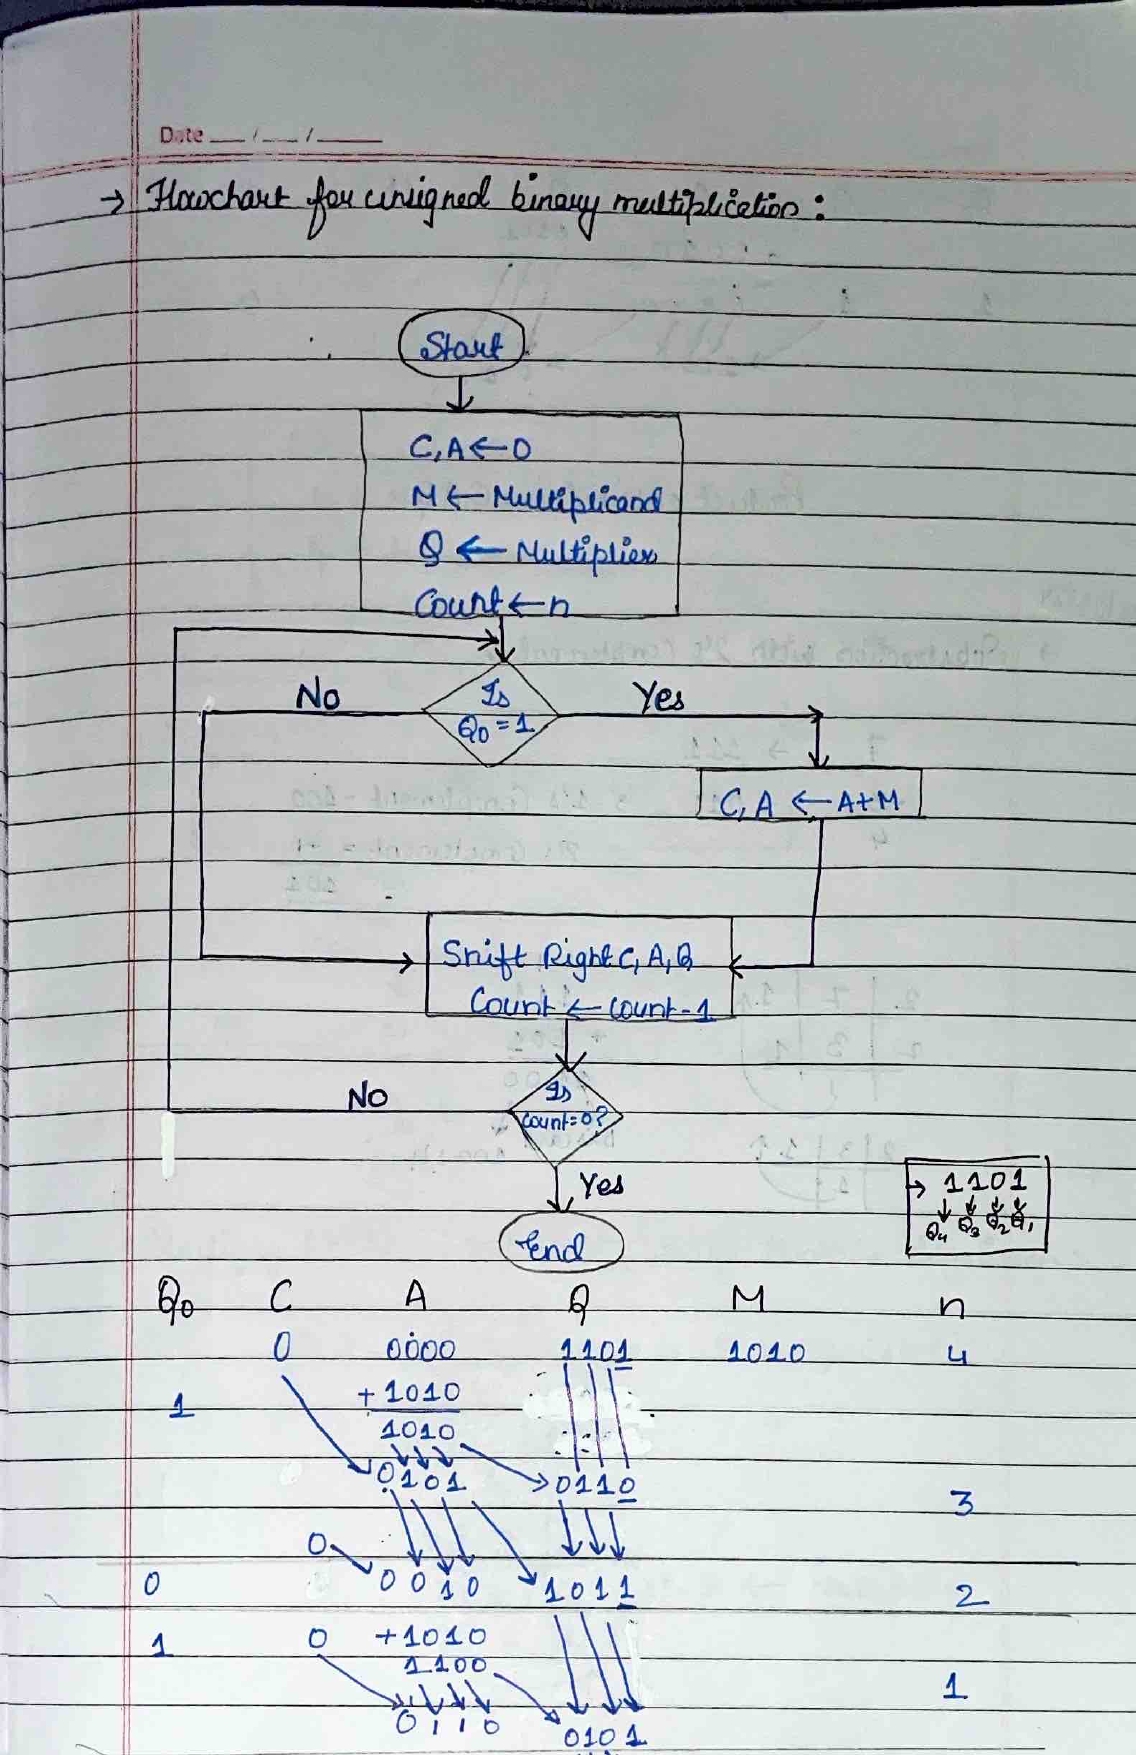 Date __ / __ / ____
→ Flowchart for unsigned binary multiplication :
Start
C, A ← 0
M ← Multiplicand
Q ← Multiplier
Count ← n
Is
Q0 = 1
No
Yes
C, A ← A+M
Shift Right C, A, Q
Count ← count - 1
Is
count = 0?
No
Yes
End
→ 1101
Q4 Q3 Q2 Q1
Q0 C A Q M n
0 0000 1101 1010 4
1 + 1010
1010
0101 0110 3
0
0 0010 1011 2
1 0 +1010
1100
1
0110 0101